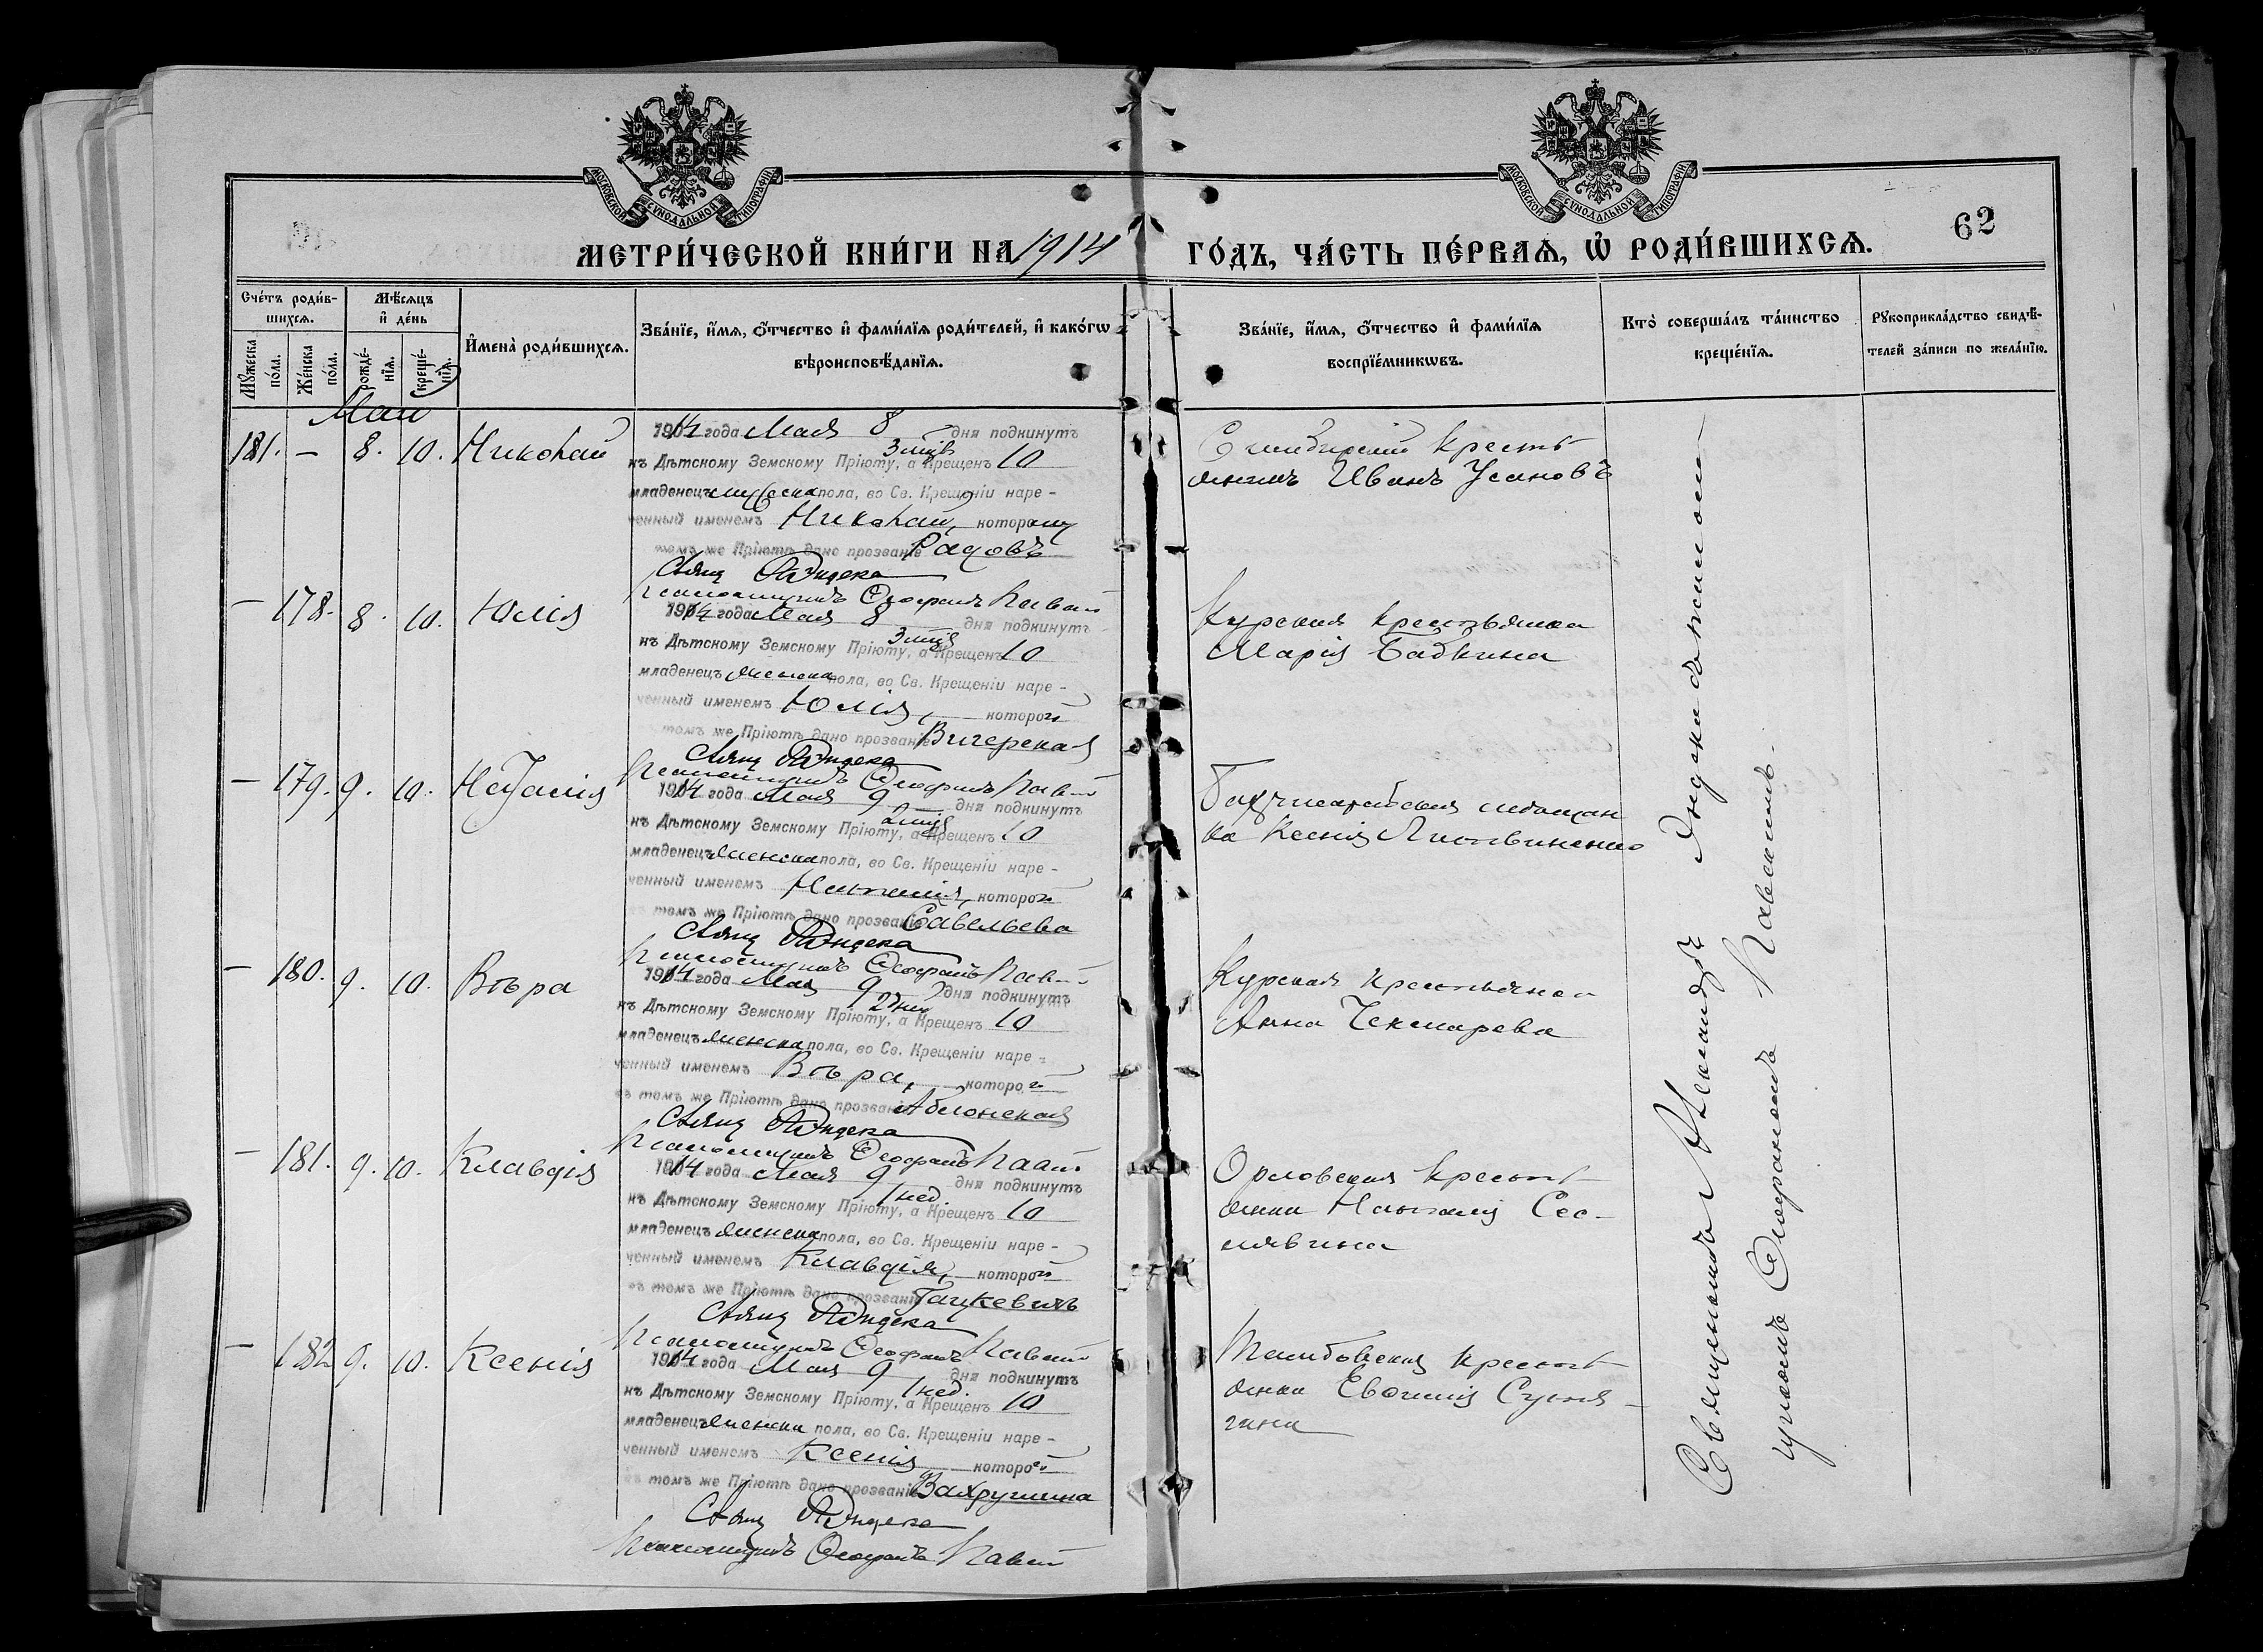 МОСКОВСКОЙ СѴНОДАЛЬНОЙ ТИПОГРАФІИ
МОСКОВСКОЙ СѴНОДАЛЬНОЙ ТИПОГРАФІИ
62
МЕТРИ́ЧЕСКОЙ КНИ́ГИ НА 1914 ГО́ДЪ, ЧА́СТЬ ПЕ́РВАѦ, Ѽ РОДИ́ВШИХСѦ.
Сче́тъ роди́в-
шихсѧ.
Мѣ́сѧцъ
и҆ де́нь
Мꙋ́жеска
по́ла.
Же́нска
по́ла.
рожде́-
нїѧ.
креще́-
нїѧ.
И҆мена̀ роди́вшихсѧ.
Зва́нїе, и҆́мѧ, ѻ҆́тчество и҆ фами́лїѧ роди́телей, и҆ како́гѡ
вѣроисповѣ́данїѧ.
Зва́нїе, и҆́мѧ, ѻ҆́тчество и҆ фами́лїѧ
воспрїе́мникѡвъ.
Кто̀ соверша́лъ та́инство
креще́нїѧ.
Рꙋкоприкла́дство свидѣ́-
телей за́писи по жела́нїю.
Маи
181. — 8. 10. Николай
1914 года Мая 8 дня подкинутъ
3 мцв
къ Дѣтскому Земскому Пріюту, а Крещенъ 10
младенецъ мужеска пола, во Св. Крещеніи наре-
ченный именемъ Николай, которому
томъ же Пріютѣ дано прозваніе Радовъ
Свящ Яндека
Псаломщикъ Ѳеофанъ
Симбирскій кресть
янинъ Иванъ Усановъ
— 178. 8. 10. Юлія
1914 года Мая 8 дня подкинутъ
къ Дѣтскому Земскому Пріюту, а Крещенъ 10
младенецъ женска пола, во Св. Крещеніи наре-
ченный именемъ Юлія, которой
томъ же Пріютѣ дано прозваніе
Свящ Яндека
Псаломщикъ Ѳеофанъ
Курская крестьянка
Марія Бабкина
— 179. 9. 10. Наталія
1914 года Мая 9 дня подкинутъ
къ Дѣтскому Земскому Пріюту, а Крещенъ 10
младенецъ женска пола, во Св. Крещеніи наре-
ченный именемъ Наталія, которой
томъ же Пріютѣ дано прозваніе Савельева
Свящ Яндека
Псаломщикъ Ѳеофанъ
Бахчисарайская мѣщан
ка Ксенія Литвиненко
— 180. 9. 10. Вѣра
1914 года Мая 9 дня подкинутъ
2 дня
къ Дѣтскому Земскому Пріюту, а Крещенъ 10
младенецъ женска пола, во Св. Крещеніи наре-
ченный именемъ Вѣра, которой
въ томъ же Пріютѣ дано прозваніе Аблонская
Свящ Яндека
Псаломщикъ Ѳеофанъ
Курская крестьянка
Анна Чекмарева
— 181. 9. 10. Клавдія
1914 года Мая 9 дня подкинутъ
1 нед.
къ Дѣтскому Земскому Пріюту, а Крещенъ 10
младенецъ женска пола, во Св. Крещеніи наре-
ченный именемъ Клавдія, которой
въ томъ же Пріютѣ дано прозваніе Гацкевичъ
Свящ Яндека
Псаломщикъ Ѳеофанъ
Орловская кресть
янка Наталія Сес-
лявина
— 182 9. 10. Ксенія
1914 года Мая 9 дня подкинутъ
1 нед.
къ Дѣтскому Земскому Пріюту, а Крещенъ 10
младенецъ женска пола, во Св. Крещеніи наре-
ченный именемъ Ксенія которой
въ томъ же Пріютѣ дано прозваніе Вахрушина
Свящ Яндека
Псаломщикъ Ѳеофанъ
Тамбовская кресть
янка
гина
Священникъ Александръ Яндека
щикомъ Ѳеофаномъ